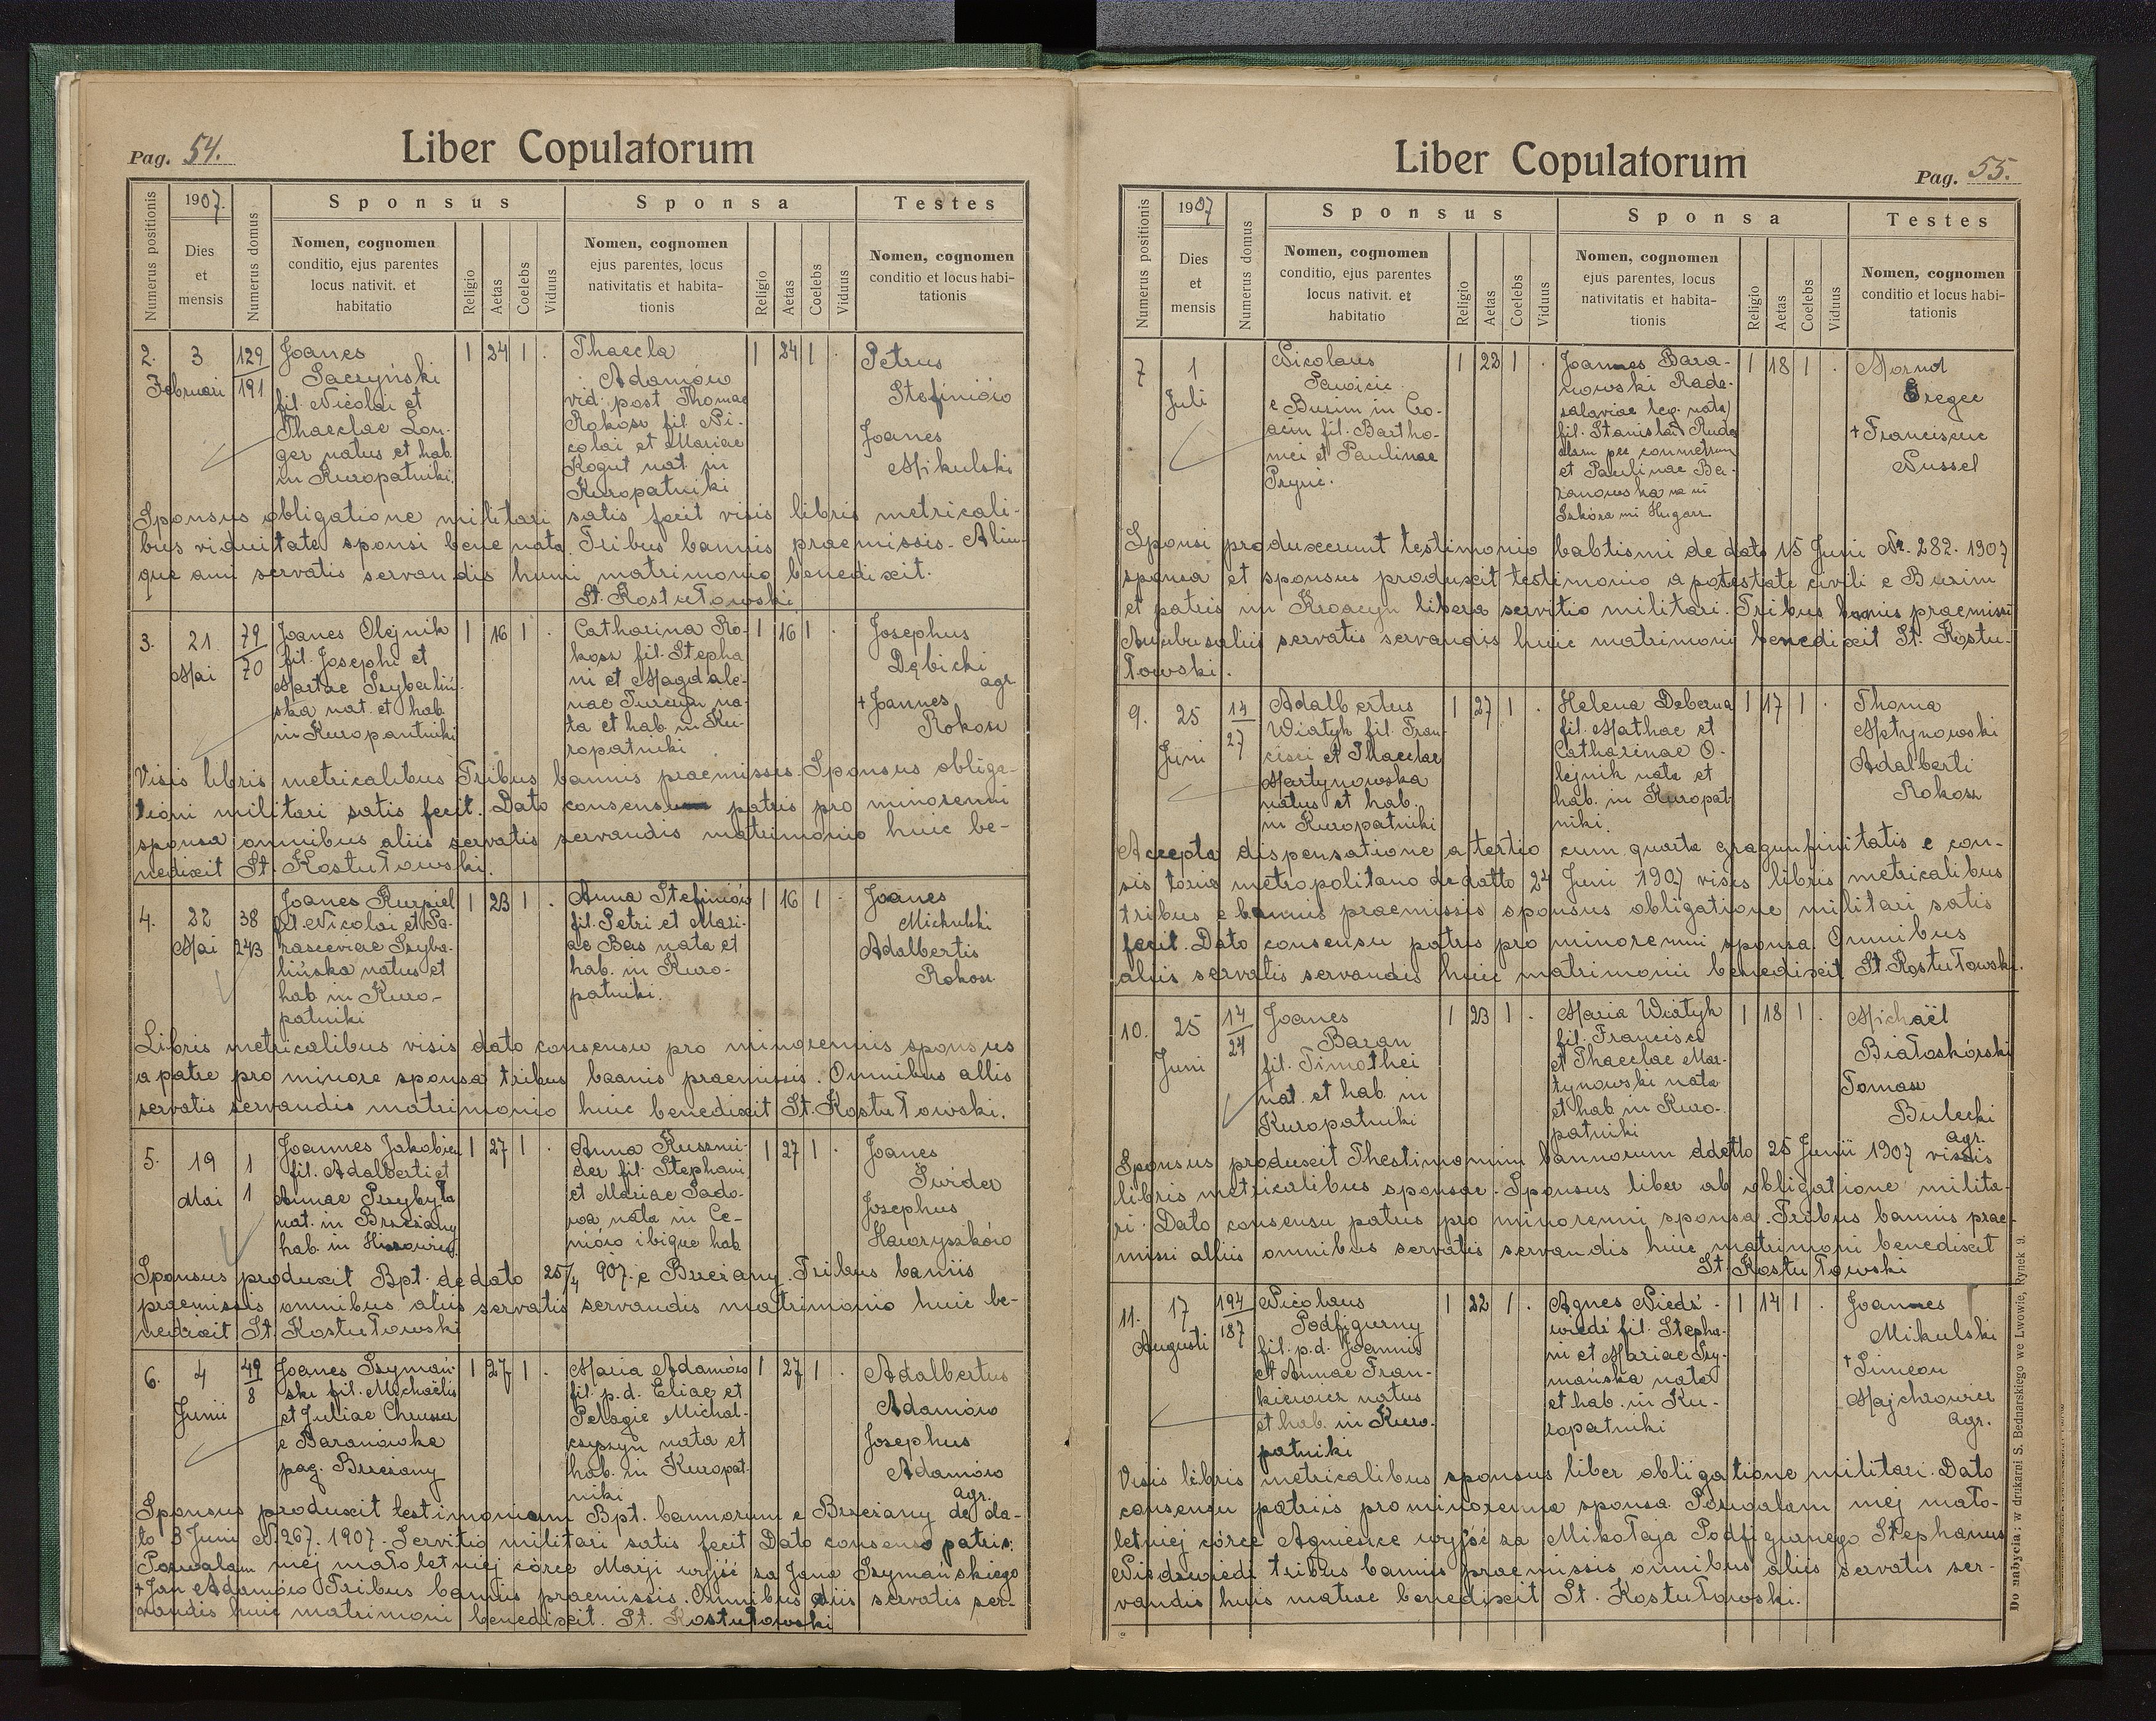 Pag. 54.
Liber Copulatorum
Numerus positionis
1907.
Dies
et
mensis
Numerus domus
Sponsus
Nomen, cognomen
conditio, ejus parentes
locus nativit. et
habitatio
Religio
Aetas
Coelebs
Viduus
Sponsa
Nomen, cognomen
ejus parentes, locus
nativitatis et habita-
tionis
Religio
Aetas
Coelebs
Viduus
Testes
Nomen, cognomen
conditio et locus habi-
tationis
2.
3
Februari
129
191
Joanes
Saczyński
fil. Nicolai et
Thaeclae Lon-
ger natus et hab.
in Kuropatniki.
1 24 1 .
Thaecla
Adamów
vid. post Thomae
Rokosz fil. Ni-
colai et Mariae
Kogut nat. in
Kuropatniki
1 24 1 .
Petrus
Stefiniów
Joanes
Mikulski
Sponsus obligatione militari satis fecit visis libris metricali-
bus viduitate sponsi bene nata. Tribus bannis praemissis. Aliu-
que ami servatis servandis humi matrimonio benedixit.
St. Kostutowski
3.
21.
Mai
79
70
Joanes Olejnik
fil. Josephi et
Martae Szyberliń-
ska nat. et hab.
in Kuropantniki
1 16 1 .
Catharina Ro-
kosz fil. Stepha
ni et Magdale-
nae Turczyn na-
ta et hab. in Ku-
ropatniki
1 16 1 .
Josephus
Dębicki
agr.
+ Joannes
Rokosz
Visis libris metricalibus Tribus bannis praemissis. Sponsus obliga-
tioni militari satis fecit. Dato consensu patris pro minorenni
sponsa omnibus aliis servatis servandis matrimonio huic be-
nedixit St. Kostutowski.
4.
22
Mai
38
243
Joanes Kurpiel
fil. Nicolai et Pa-
rasceviae Szyba-
lińska natus et
hab in Kuro-
patniki
1 23 1 .
Anna Stefiniów
fil. Petri et Mari-
ae Bas nata et
hab. in Kuro-
patniki.
1 16 1 .
Joanes
Michulski
Adalbertis
Rokosz
Libris metricalibus visis dato consensu pro minorennis sponsus
a patre pro minore sponsa tribus baanis praemissis. Omnibus allis
servatis servandis matrimonio huic benedixit St. Kostutowski.
5.
19
Mai
1
1
Joannes Jakobien
fil. Adalberti et
Annae Przybyła
nat. in Brzeżany
hab. in
1 27 1 .
Anna Kuszni-
der fil. Stephani
et Mariae Sado-
wa nata in Ce-
niów ibique hab
1 27 1 .
Joanes
Swider
Josephus
Hawryszków
Sponsus produxit Bpt. de dato 25/4 907. e Brzeżany. Tribus baniis
praemissis omnibus aliis servatis servandis matrimonio huic be-
nedixit St. Kostutowski
6.
4
Junii
49
8
Joanes Szymań-
ski fil. Michaëlis
et Juliae Chrusser
e Baranówka
pag. Brzeżany
1 27 1 .
Maria Adamów
fil. p. d. Eliae et
Pelagie Michal-
czyszyn nata et
hab. in Kuropat-
niki
1 27 1 .
Adalbertus
Adamów
Josephus
Adamów
agr.
Sponsus produxit testimoniam Bpt. bannorum e Brzeżany de da-
to 3 Juni N. 267. 1907. Servitio militari satis fecit Dato consenso patris:
Pozwalam mej małoletniej córce Marji wyjść za Jana Szymańskiego
+ Jan Adamów Tribus bannis praemissis. Omnibus aliis servatis ser-
vandis huic matrimoni benedixit. St. Kostutowski
Liber Copulatorum
Pag. 55.
Numerus positionis
1907
Dies
et
mensis
Numerus domus
Sponsus
Nomen, cognomen
conditio, ejus parentes
locus nativit. et
habitatio
Religio
Aetas
Coelebs
Viduus
Sponsa
Nomen, cognomen
ejus parentes, locus
nativitatis et habita-
tionis
Religio
Aetas
Coelebs
Viduus
Testes
Nomen, cognomen
conditio et locus habi-
tationis
7
1
Juli
Nicolaus
Pavicic
e Buzim in Cro-
acin fil. Bartho-
mei et Paulinae
Prync.
1 22 1 .
Joannes Bara-
nowski Rade-
salaviae leg. nata
fil. Stanislai
et Paulinae Ba-
ranowska na ni
1 18 1 .
Gregec
+ Franciscuc
Nussel
Sponsi produxerunt testimonio babtismi de dato 15 Juni Nr. 282. 1907
sponsa et sponsus produxit testimonio a potestate civili e Buzim
et patris in Kroacyn libera servitio militari. Tribus bannis praemissi
servatis servandis huic matrimonii benedixit St. Kostu-
towski.
9.
25
Juni
14
27
Adalbertus
Wiatyk fil. Fran-
cisci et Thaeclae
Martynowska
natus et hab.
in Kuropatniki
1 27 1 .
Helena Deberna
fil. Mathae et
Catharinae O-
lejnik nata et
hab. in Kuropat-
niki.
1 17 1 .
Thoma
Matynowski
Adalberti
Rokosz
Accepta dispensatione a tertio cum quarta gragunfinitatis e con-
sis toris metropolitano de datto 24 Juni 1907 visis libris metricalibus
tribus e bannis praemissis sponsus obligatione militari satis
fecit. Dato consensu patris pro minorenni sponsa. Omnibus
aliis servatis servandis huic matrimonii benedixit St. Kostutowski.
10.
25
Juni
14
24
Joanes
Baran
fil. Timothei
nat. et hab. in
Kuropatniki
1 23 1 .
Maria Wiatyk
fil. Francisci
et Thaeclae Mar-
tynowski nata
et hab in Kuro-
patniki
1 18 1 .
Michaël
Białoskórski
Tomasz
Bulecki
agr.
Sponsus produxit Thestimomim bannorum ddetto 25 Junii 1907 vissis
libris metricalibus sponsae. Sponsus liber ab obligatione milita-
ri. Dato consensu patris pro minorenni sponsa. Tribus bannis prae-
missi alliis omnibus servatis servandis huic matrimoni benedixit
St. Kostutowski
11.
17
Augusti
194
187
Nicolaus
Podfigurny
fil. p. d. Joannis
et Annae Fran-
kiewicz natus
et hab. in Kuro-
patniki
1 22 1 .
Agnes Niedź-
wiedź fil. Stepha-
ni et Mariae Szy-
mańska nata
et hab. in Ku-
ropatniki
1 14 1 .
Joannes
Mikulski
+ Simeon
Majchrowicz
agr.
Visis libris metricalibus sponsus liber obliigatione militari. Dato
consensu patriis pro minorenna sponsa. Pozwalam mej mało-
letniej córce Agnieszce wyjść za Mikołaja Podfigurnego Stephanus
Niedzwiedz tribus bannis praemissis omnibus aliis servatis ser-
vandis huis matrae benedixit St. Kostutowski.
Do nabycia: w drukarni S. Bednarskiego we Lwowie, Rynek 9.